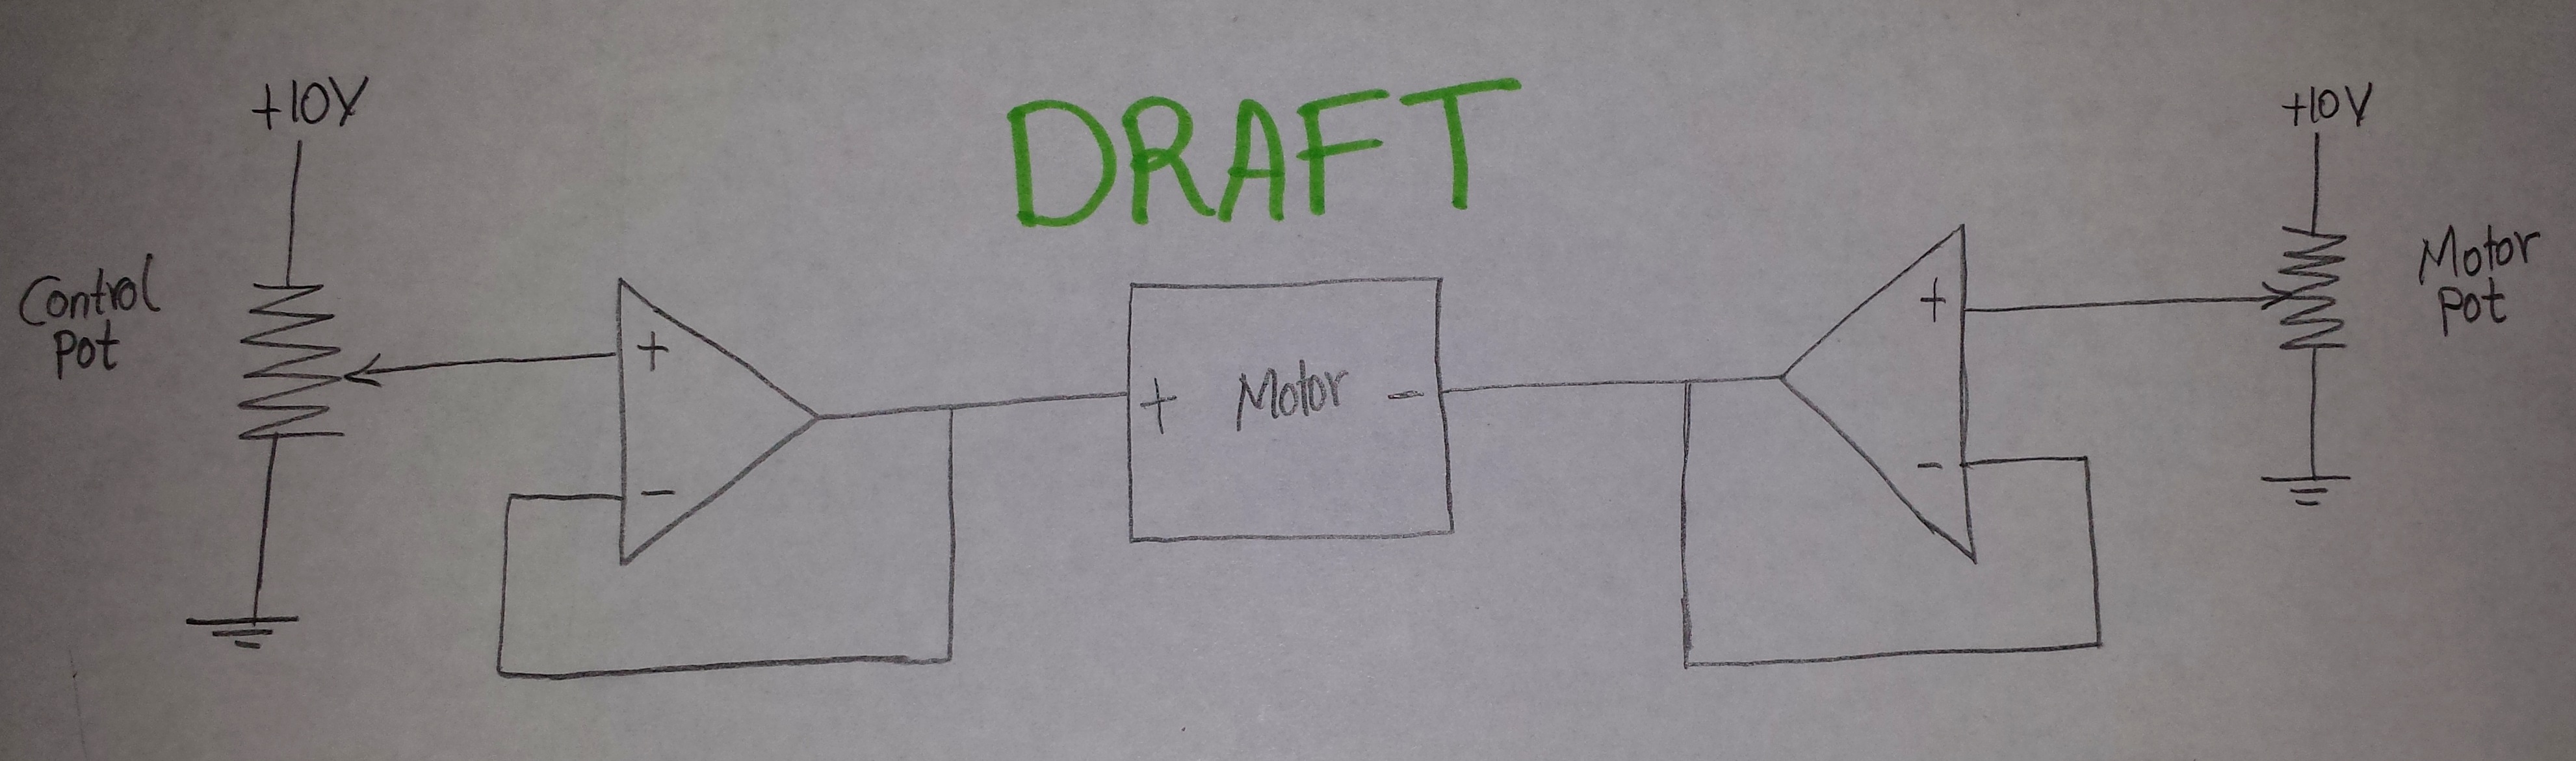 +10V
DRAFT
+10V
Control
Pot
+
-
+ Motor -
+
-
Motor
Pot